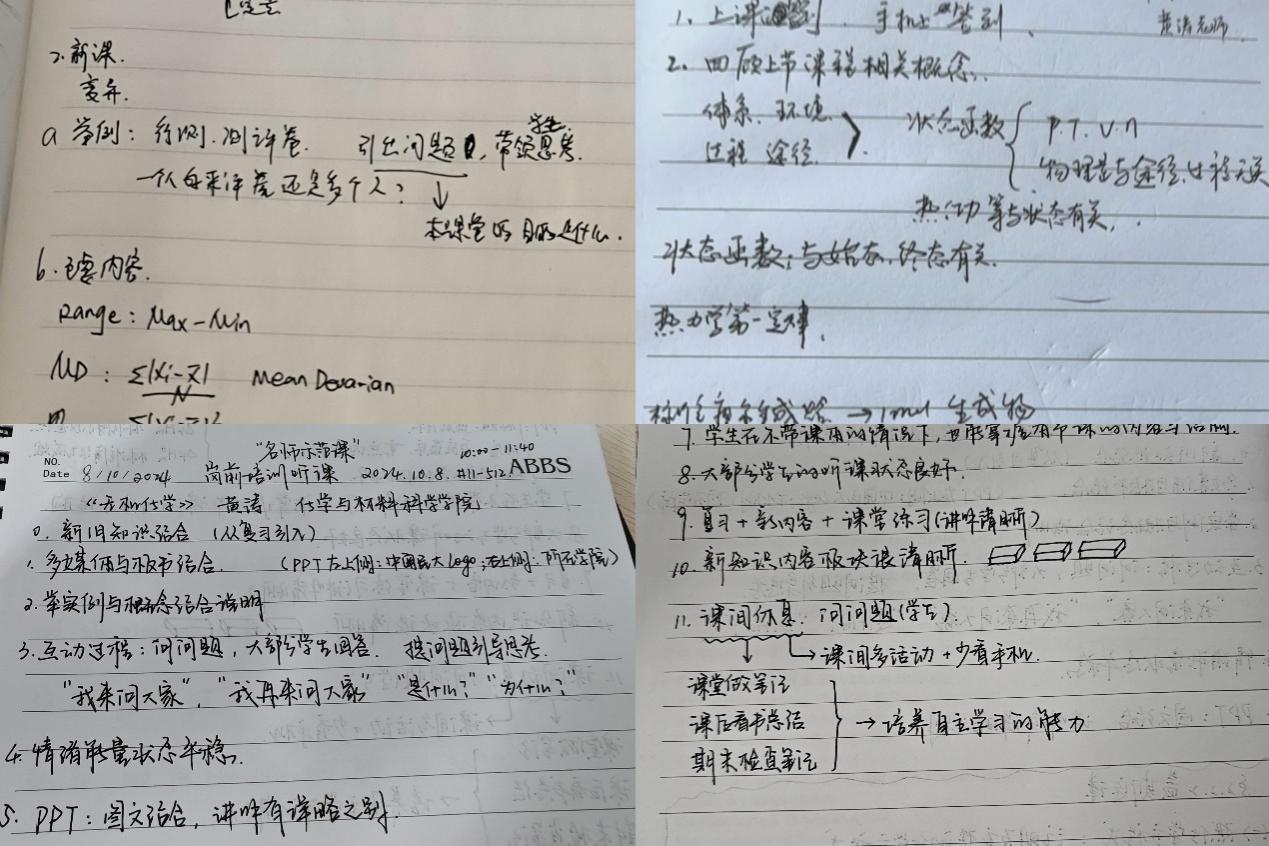 2.新课.
变异.
a 举例: 行测.测评卷. 引出问题, 带领学生思考.
一个人自来评卷还是多个人?
本课堂的目的是什么.
b.主要内容.
Range: Max-Min
MD: Σ|Xi-x̄| / N Mean Devarian
1. 上课 签到. 手机上签到. 黄涛老师.
2. 回顾上节课程相关概念.
体系.环境.
过程 途径.
状态函数
P.T.V.n
物理量与途径.过程无关
热.功 等与状态有关.
状态函数: 与始态.终态有关.
热力学第一定律.
→1mol 生成物
"名师示范课" 10:00-11:40
NO.
Date 8/10/2024 岗前培训听课 2024.10.8. #11-512 ABBS
《无机化学》 黄涛 化学与材料科学学院
0. 新旧知识结合 (从复习引入)
1. 多媒体与板书结合. (PPT左上侧:中南民大Logo;右上侧:所在学院)
2. 举实例与概念结合说明
3. 互动过程: 问问题, 大部分学生回答. 提问题引导思考.
"我来问大家", "我再来问大家" "是什么?" "为什么?"
4. 情绪能量状态平稳.
5. PPT: 图文结合, 讲解有详略之别.
7. 学生在不带课本的情况下,
8. 大部分学生的听课状态良好.
9. 复习+新内容+课堂练习(讲解清晰)
10. 新知识内容板块很清晰.
11. 课间休息. 问问题(学生).
课间多活动+少看手机.
课堂做笔记
课后看书总结
期末检查笔记
→培养自主学习的能力